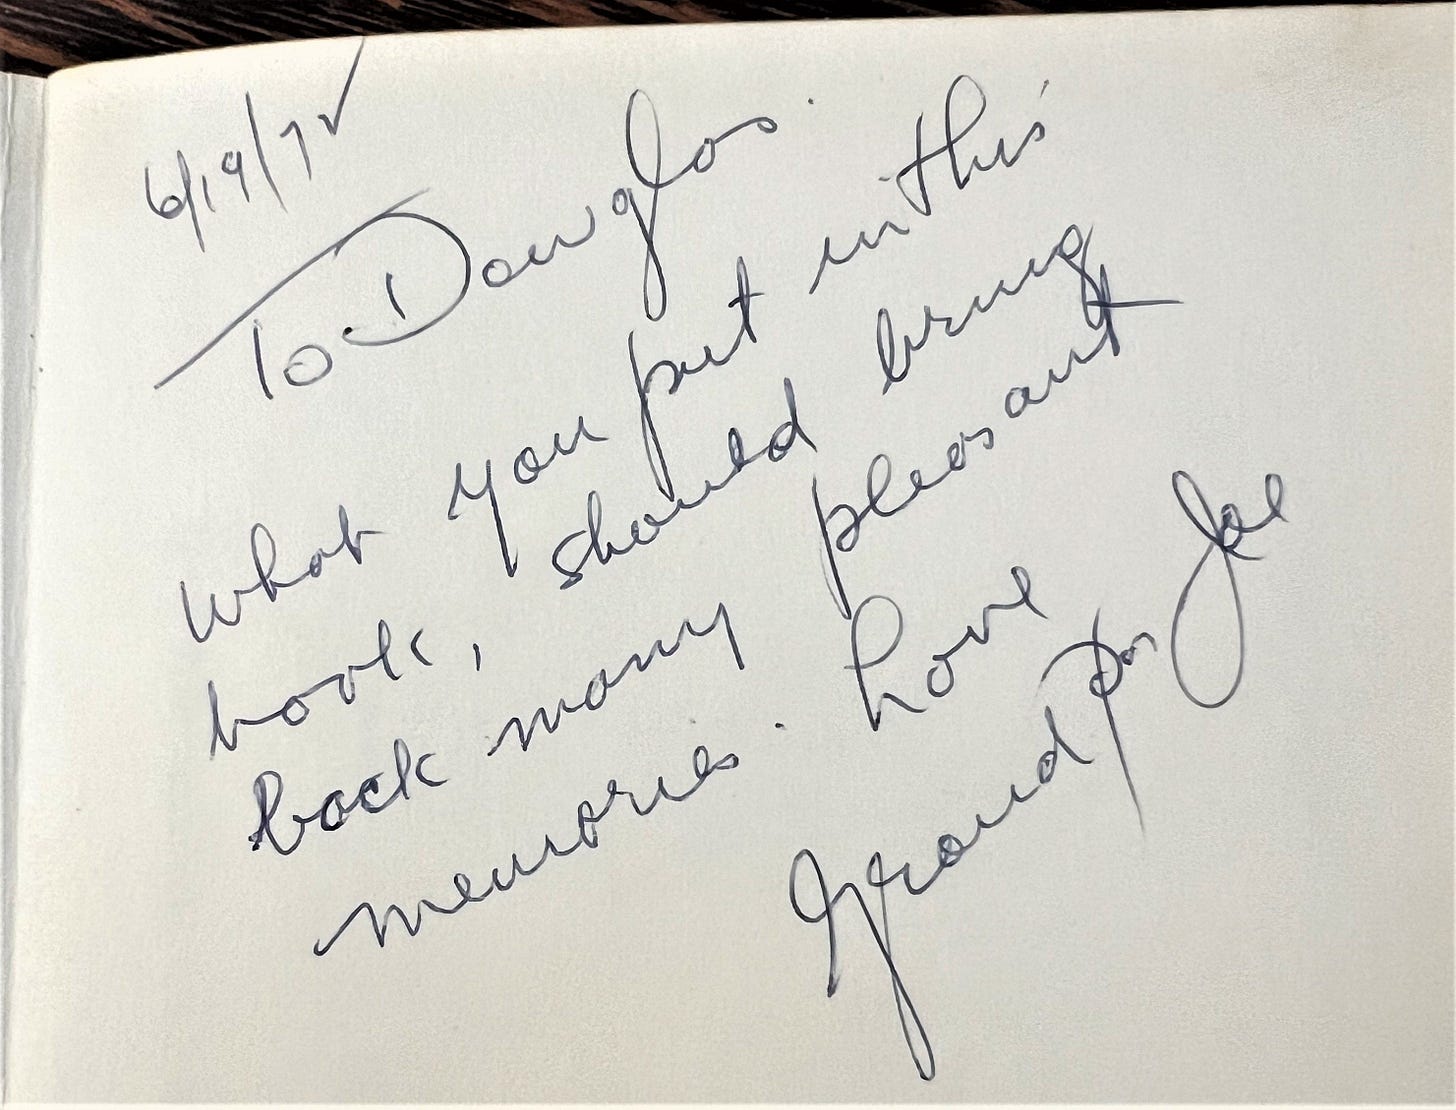 6/19/72
To Douglas.
What you put in this
book, should bring
back many pleasant
memories. Love
Grandpa Joe